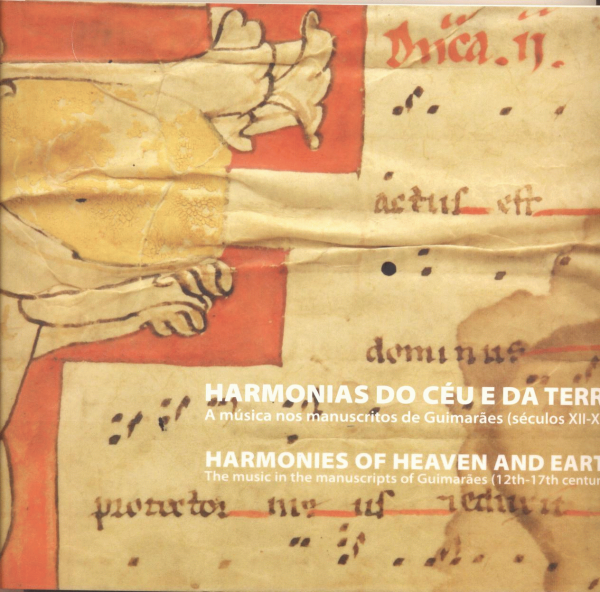 Dnica. ij.
actus est
dominus
HARMONIAS DO CÉU E DA TERR
A música nos manuscritos de Guimarães (séculos XII-X
HARMONIES OF HEAVEN AND EART
The music in the manuscripts of Guimarães (12th-17th centur
protector me us